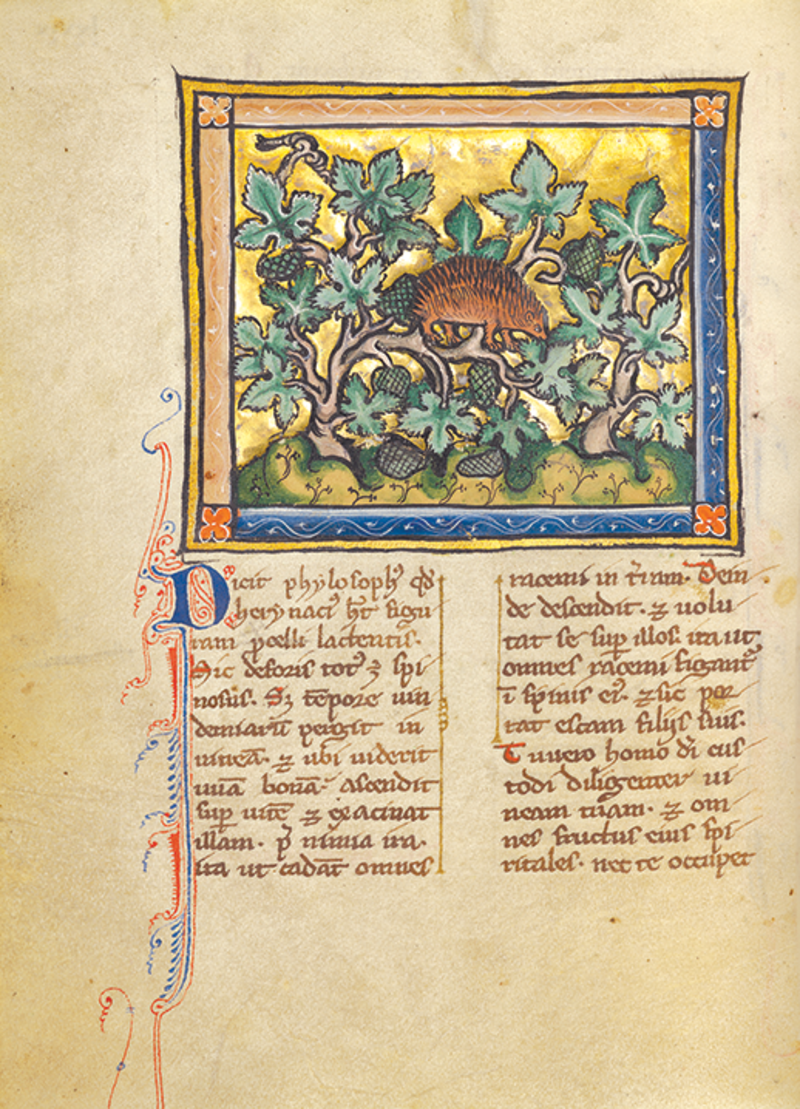 Dicit phylosoph' qd'
herynaci' ht' figu
ram p̄celli lactentis.
Sic deforis tot' ⁊ spi
nosus. S; tēpore vin
demiarū pergit in
vineā. ⁊ ubi viderit
uuā bonā. Ascendit
sup vitē ⁊ exacinat
illam. p'
ita ut cadāt omnes
racemi in t'ram. Dein
de descendit. ⁊ uolu
tat se sup illos. ita ut
omnes racemi figant'
ī spinis ei'. ⁊ sic por
tat escam filijs suis.
Tu uero homo d'i cus
todi diligenter vi
neam tuam. ⁊ om
nes fructus eius spi
ritales. nec te occupet